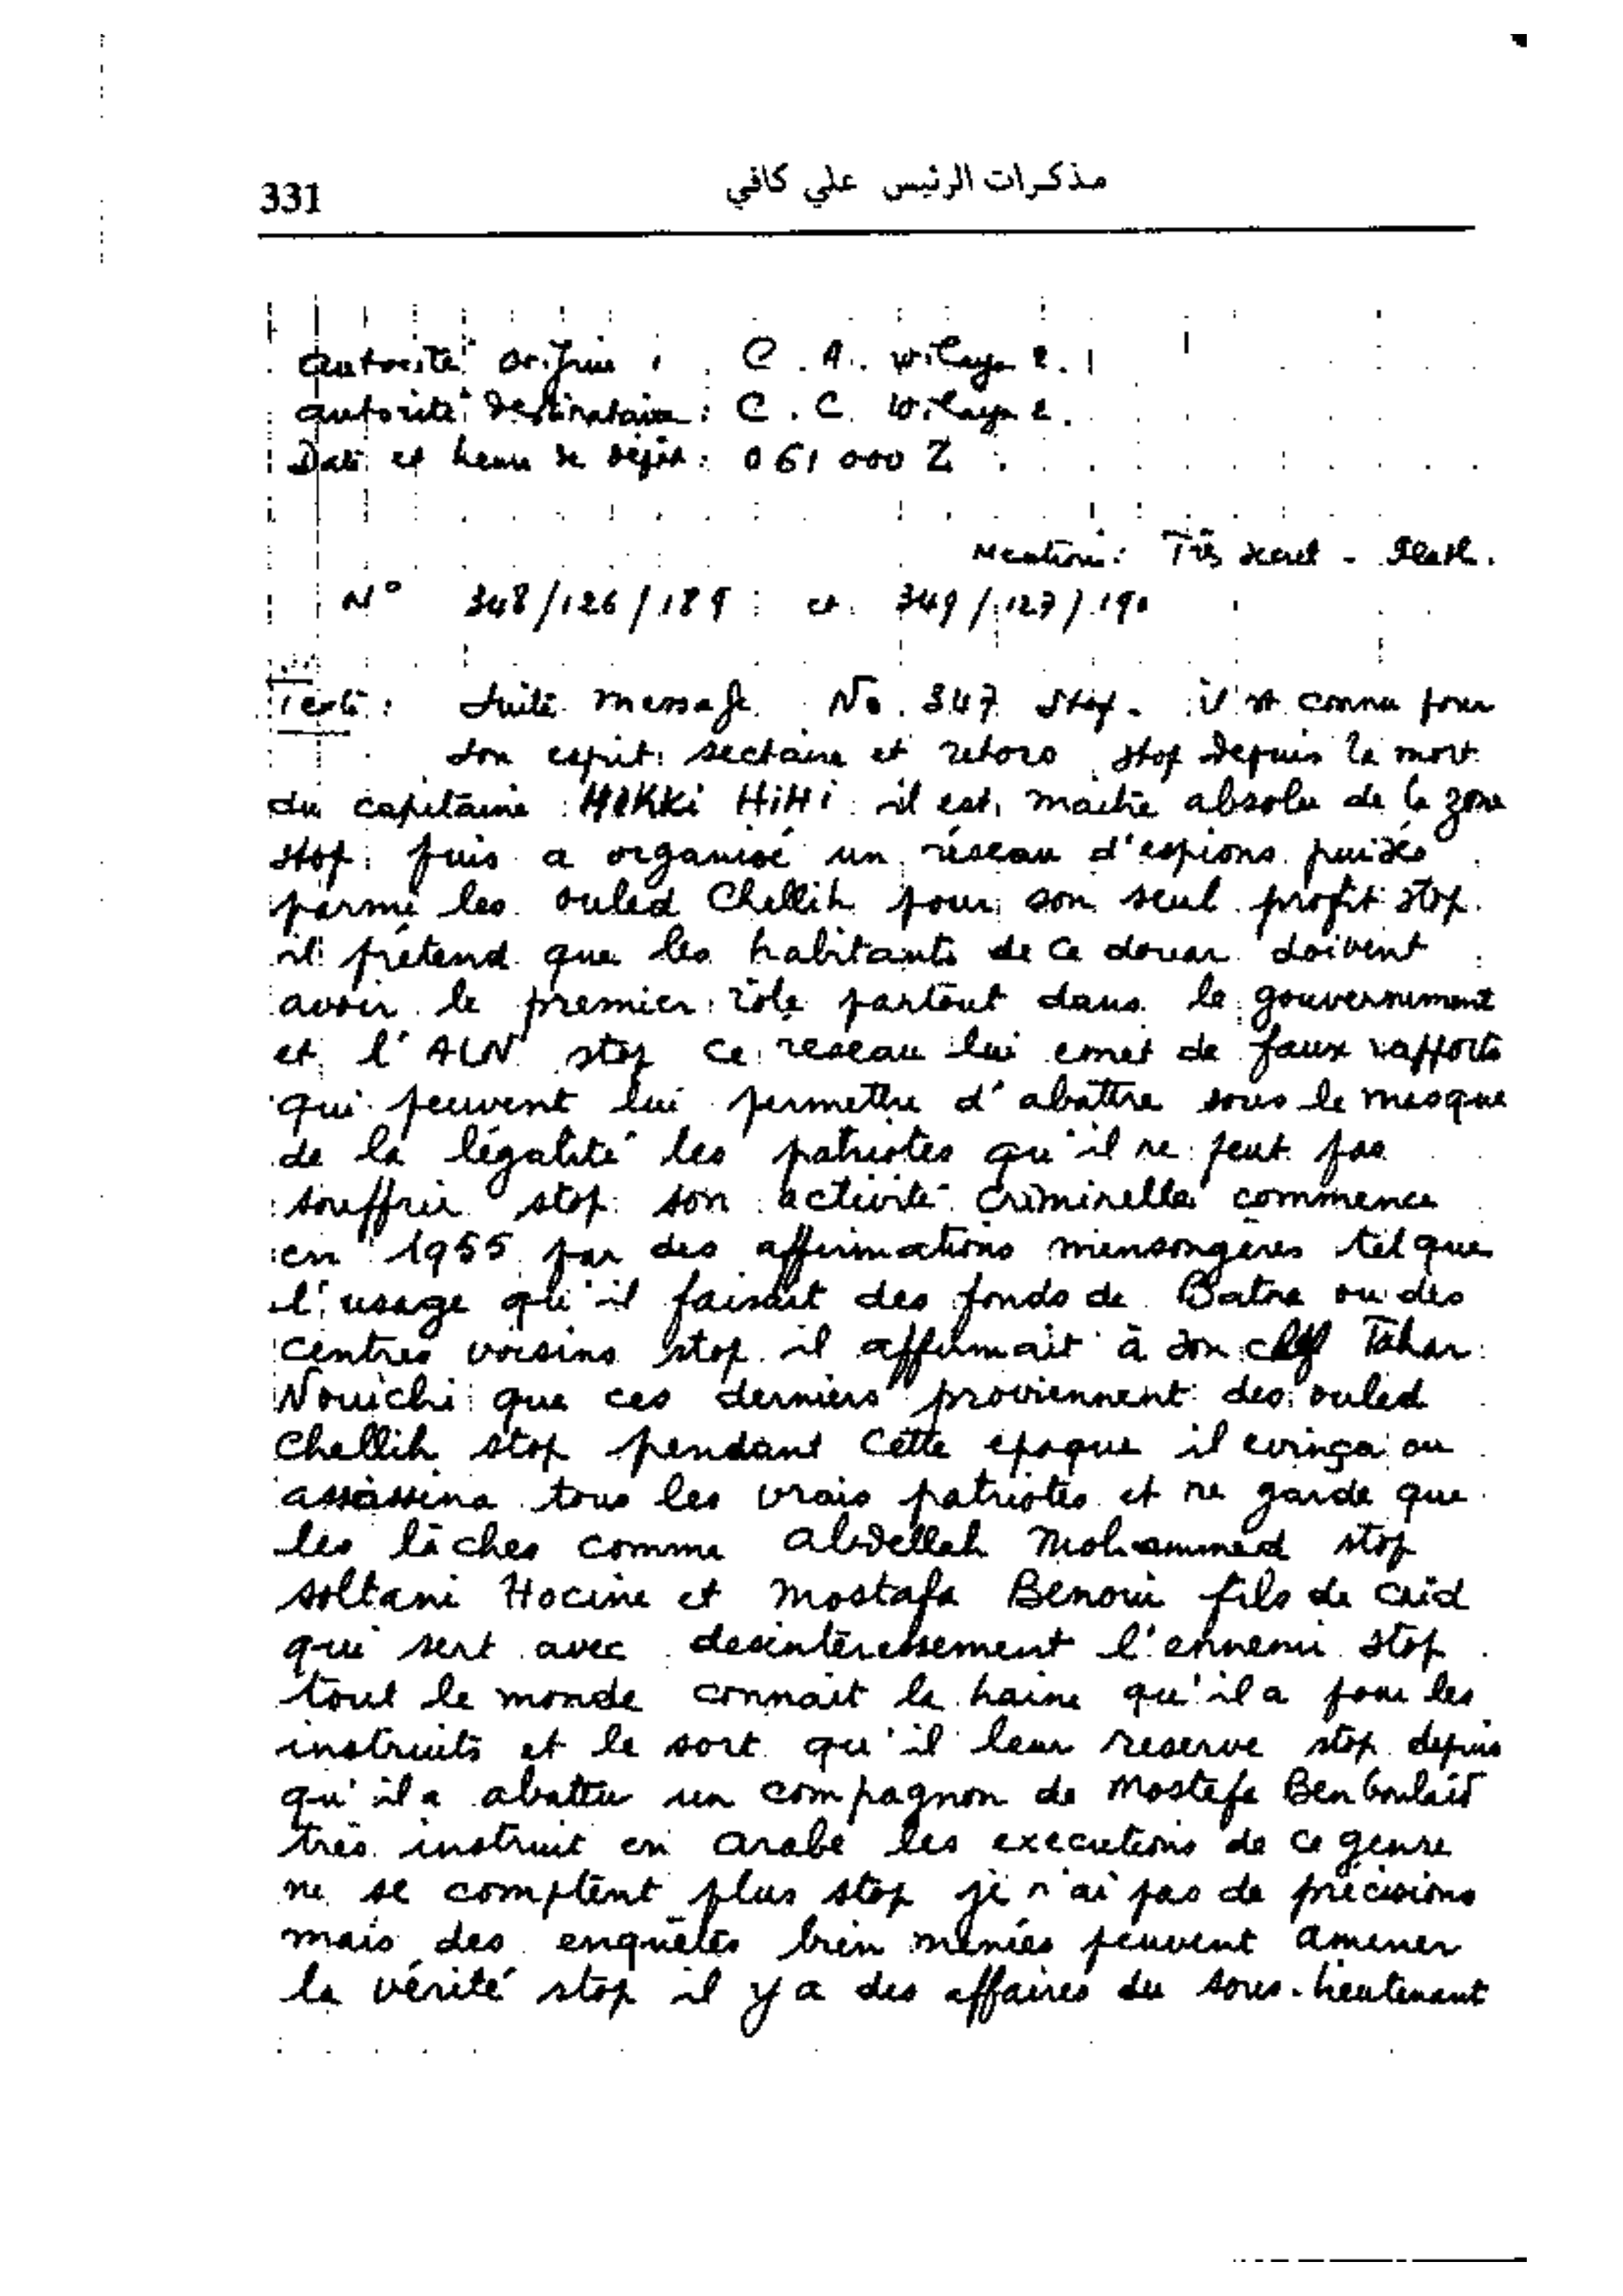 مذكرات الرئيس علي كافي
331
Autorité origine : C. A. wilaya 2.
Autorité destinataire : C. C. Wilaya 2.
Date et heure de dépôt : 061000 Z
Mention : Très secret - Flash.
N° 348/126/189 et 349/127/190
Texte : Suite message No. 347 stop. il est connu pour
son esprit sectaire et retors stop depuis la mort
du capitaine HIHI il est maitre absolu de la zone
stop puis a organisé un réseau d'espions puisés
parmi les ouled Chellih pour son seul profit stop.
il prétend que les habitants de ce douar doivent
avoir le premier rôle partout dans le gouvernement
et l'ALN stop ce reseau lui emet de faux rapports
qui peuvent lui permettre d'abattre sous le masque
de la légalité les patriotes qu'il ne peut pas
souffrir stop son activité criminelle commence
en 1955 par des affirmations mensongères tel que
l'usage qu'il faisait des fonds de Batna ou des
centres voisins stop il affirmait à son chef Tahar
Nouichi que ces derniers proviennent des ouled
Chellih stop pendant cette époque il evinça ou
assassina tous les vrais patriotes et ne garde que
les lâches comme abdellah Mohammed stop
soltani Hocine et Mostafa Benoui fils de caïd
qui sert avec desintéressement l'ennemi stop
tout le monde connait la haine qu'il a pour les
instruits et le sort qu'il leur reserve stop depuis
qu'il a abattu un compagnon de Mostefa Benboulaïd
très instruit en arabe les executions de ce genre
ne se comptent plus stop je n'ai pas de précisions
mais des enquêtes bien menées peuvent amener
la vérité stop il y a des affaires du sous-lieutenant